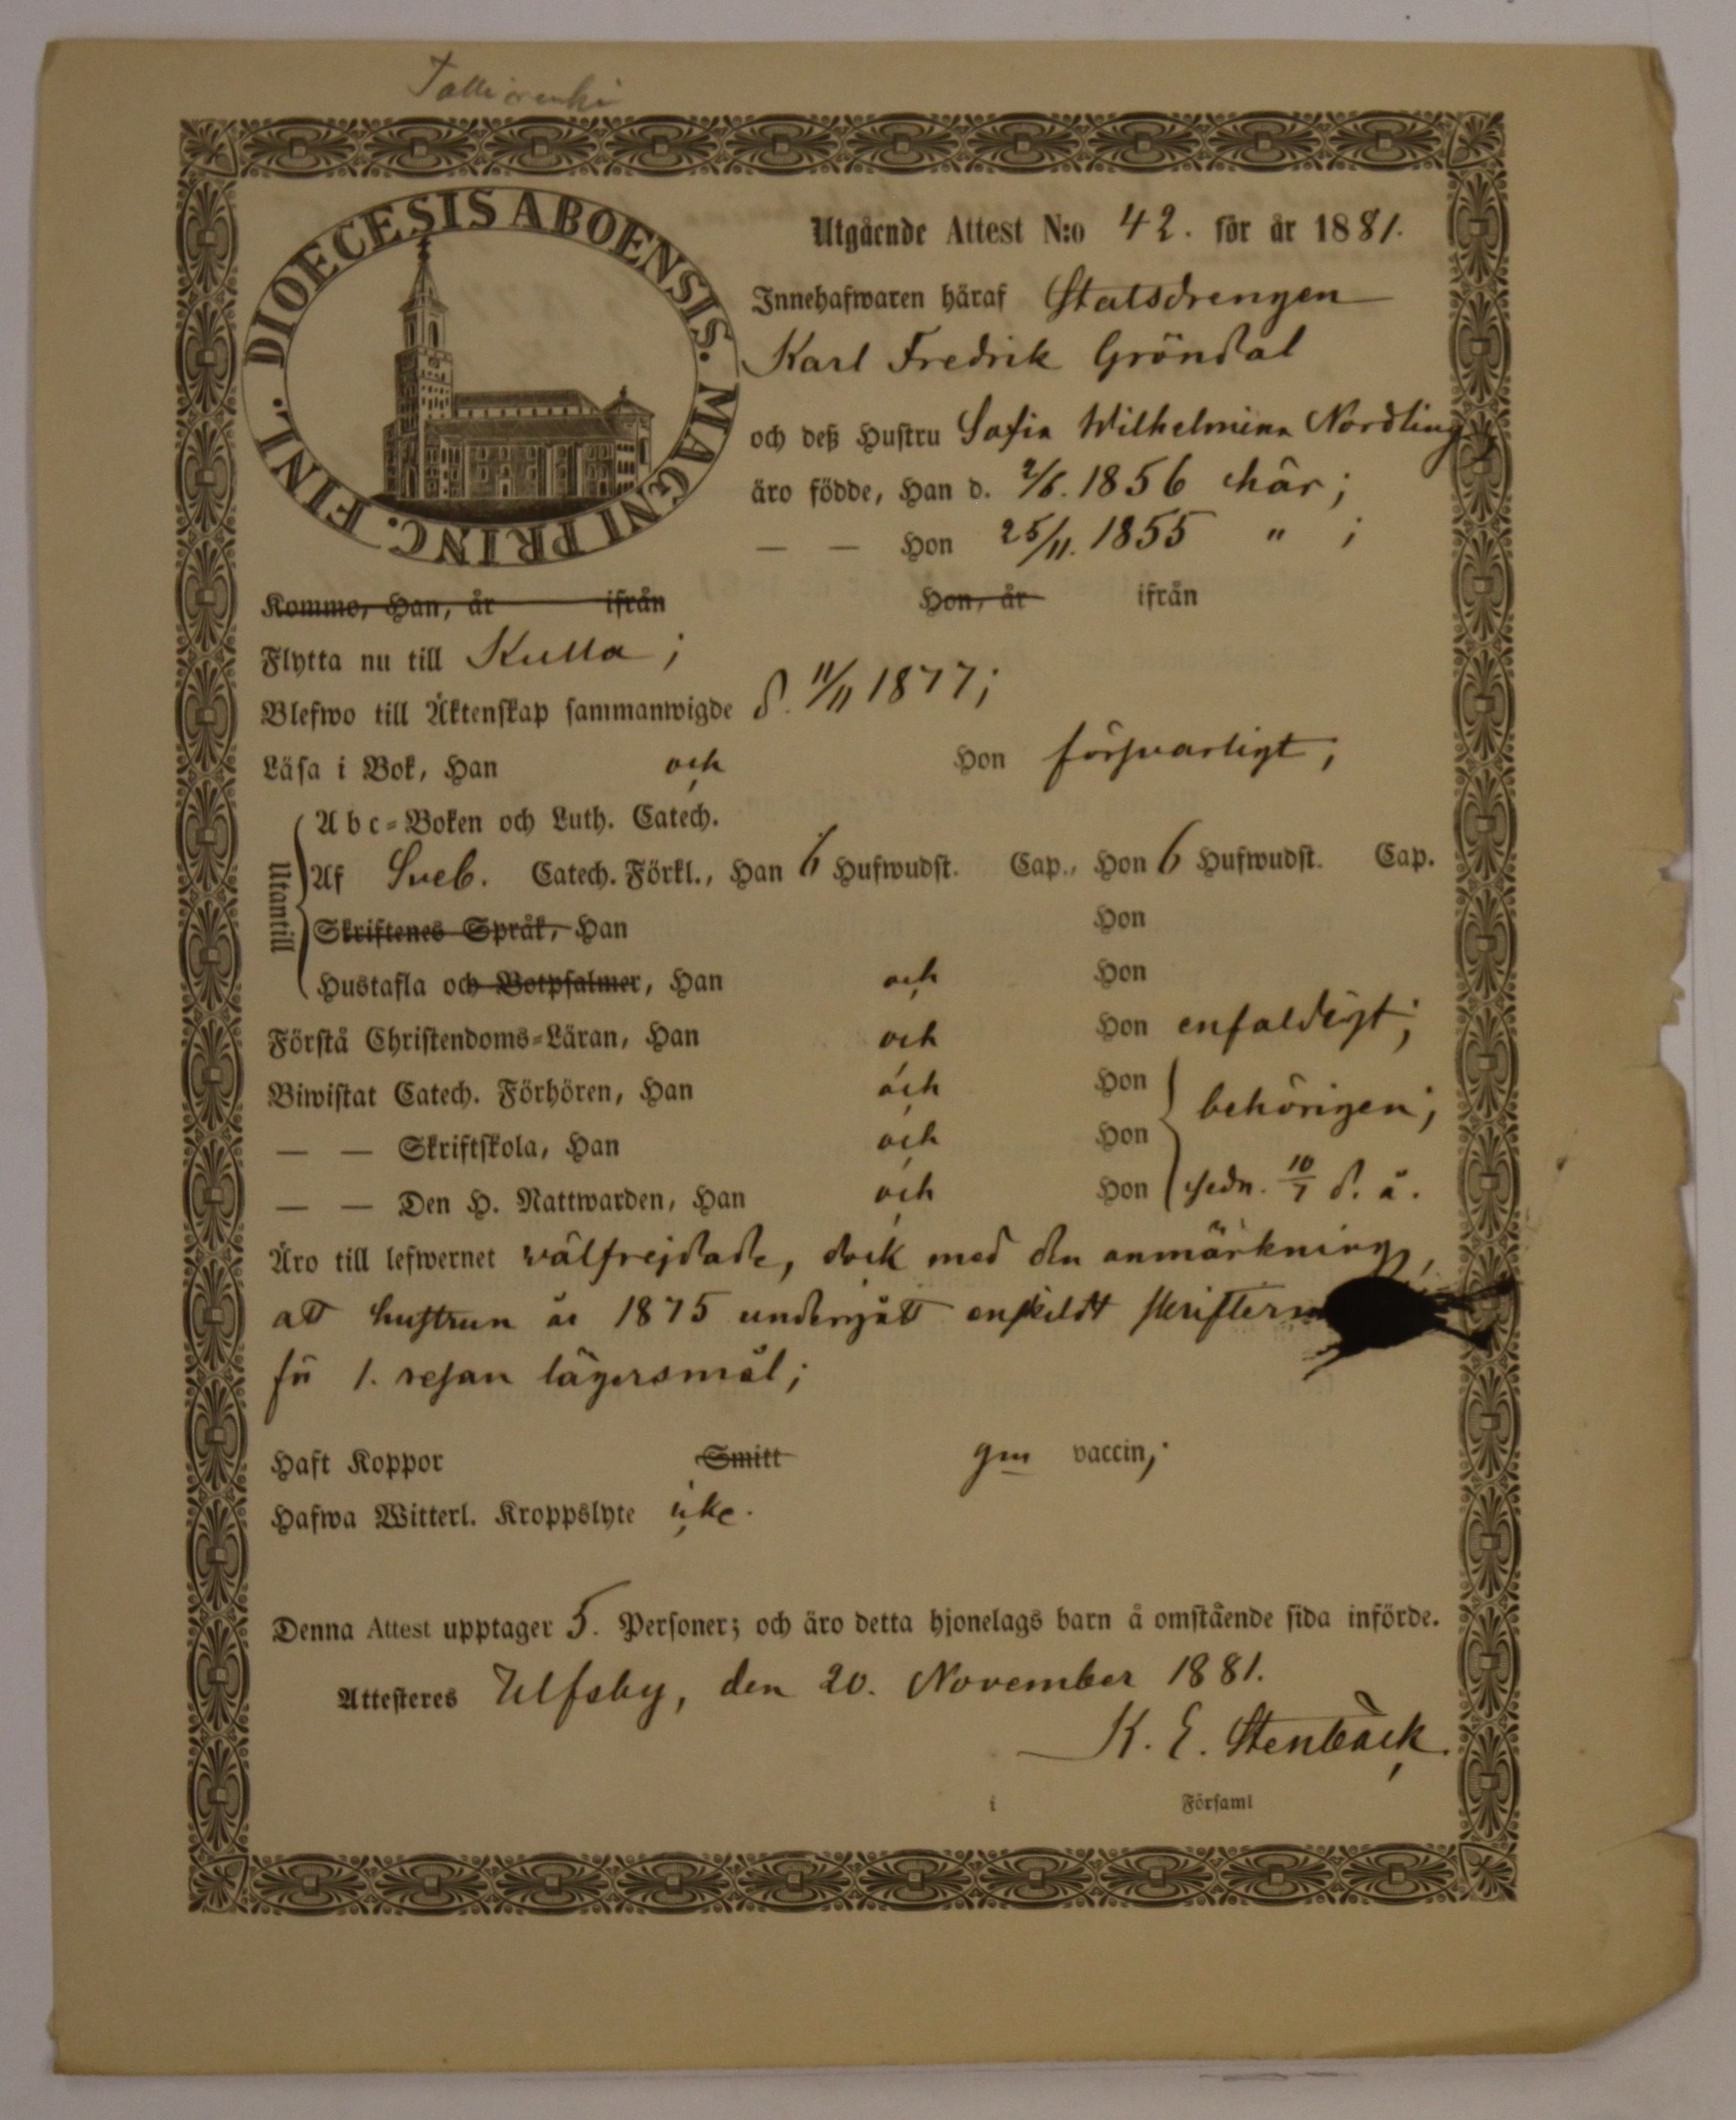 DIOECESIS ABOENSIS. MAGNI PRINC. FINL.
Utgående Attest N:o 42. för år 1881.
Innehafwaren häraf Statsdrengen
Karl Fredrik Gröndal
och deß Hustru Sofia Wilhelmina Nordling
äro födde, Han d. 2/6. 1856 här;
— — Hon 25/11. 1855 " ;
Kommo, Han, år ifrån Hon, år ifrån
Flytta nu till Kulla;
Blefwo till Äktenskap sammanwigde d. 11/11 1877;
Läsa i Bok, Han och Hon försvarligt;
Utantill
Abc-Boken och Luth. Catech.
Af Sveb. Catech. Förkl., Han 6 Hufwudst. Cap., Hon 6 Hufwudst. Cap.
Skriftenes Språk, Han Hon
Hustafla och Botpsalmer, Han och Hon
Förstå Christendoms-Läran, Han och Hon enfaldigt;
Biwistat Catech. Förhören, Han och Hon behörigen;
— — Skriftskola, Han och Hon
— — Den H. Nattwarden, Han och Hon sedn. 10/7 d. å.
Äro till lefwernet välfrejdade, dock med den anmärkning,
att hustrun år 1875 undergått enskildt
för 1. resan lägersmål;
Haft Koppor Smitt gm vaccin;
Hafwa Witterl. Kroppslyte icke.
Denna Attest upptager 5. Personer; och äro detta hjonelags barn å omstående sida införde.
Attesteres Ulfsby, den 20. November 1881.
K. E. Stenbäck.
i Församl